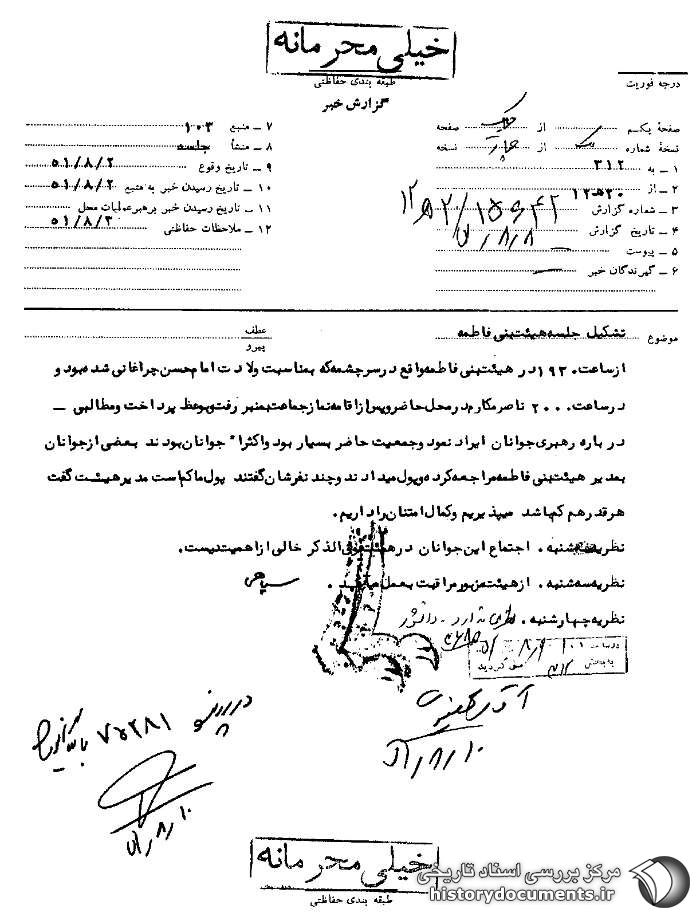 خیلی محرمانه
طبقه بندی حفاظتی
گزارش خبر
درجه فوریت
صفحه یکم از یک صفحه
نسخه شماره یک از چهار نسخه
۱ ـ به ۳۱۲
۲ ـ از ۲۰ ه ۱۲
۳ ـ شماره گزارش
۴ ـ تاریخ گزارش ۵۱/۸/۸
۵ ـ پیوست
۶ ـ گیرندگان خبر
۷ ـ منبع ۱۰۳
۸ ـ منشأ جلسه
۹ ـ تاریخ وقوع ۵۱/۸/۲
۱۰ ـ تاریخ رسیدن خبر به منبع ۵۱/۸/۲
۱۱ ـ تاریخ رسیدن خبر برهبر عملیات محل ۵۱/۸/۳
۱۲ ـ ملاحظات حفاظتی
موضوع تشکیل جلسه هیئت بنی فاطمه
عطف
پیرو
از ساعت ۱۹۳۰ در هیئت بنی فاطمه واقع در سرچشمه که بمناسبت ولادت امام حسن چراغانی شده بود و
در ساعت ۲۰۰۰ ناصر مکارم در محل حاضر و پس از اقامه نماز جماعت بمنبر رفت و بوعظ پرداخت و مطالبی ـ
در باره رهبری جوانان ایراد نمود و جمعیت حاضر بسیار بود و اکثراً جوانان بودند بعضی از جوانان
بمدیر هیئت بنی فاطمه مراجعه کرده و پول میدادند و چند نفرشان گفتند پول ما کم است مدیر هیئت گفت
هر قدر هم کم باشد میپذیریم و کمال امتنان را داریم.
نظریه شنبه. اجتماع این جوانان در هیئت فوق الذکر خالی از اهمیت نیست.
نظریه سه شنبه. از هیئت مزبور مراقبت بعمل میآید.
نظریه چهارشنبه. نظری ندارد ـ دانشور
در ساعت
به بخش ۳۱۲ می گردید
در پرونده
۵۱/۸/۱۰
۵۱/۸/۱۰
خیلی محرمانه
طبقه بندی حفاظتی
مرکز بررسی اسناد تاریخی
historydocuments.ir